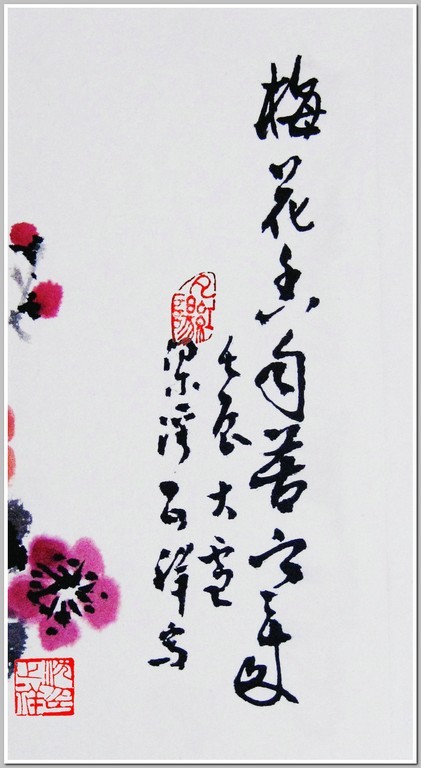 梅花香自苦寒来
壬辰大雪
梁溪正祥写